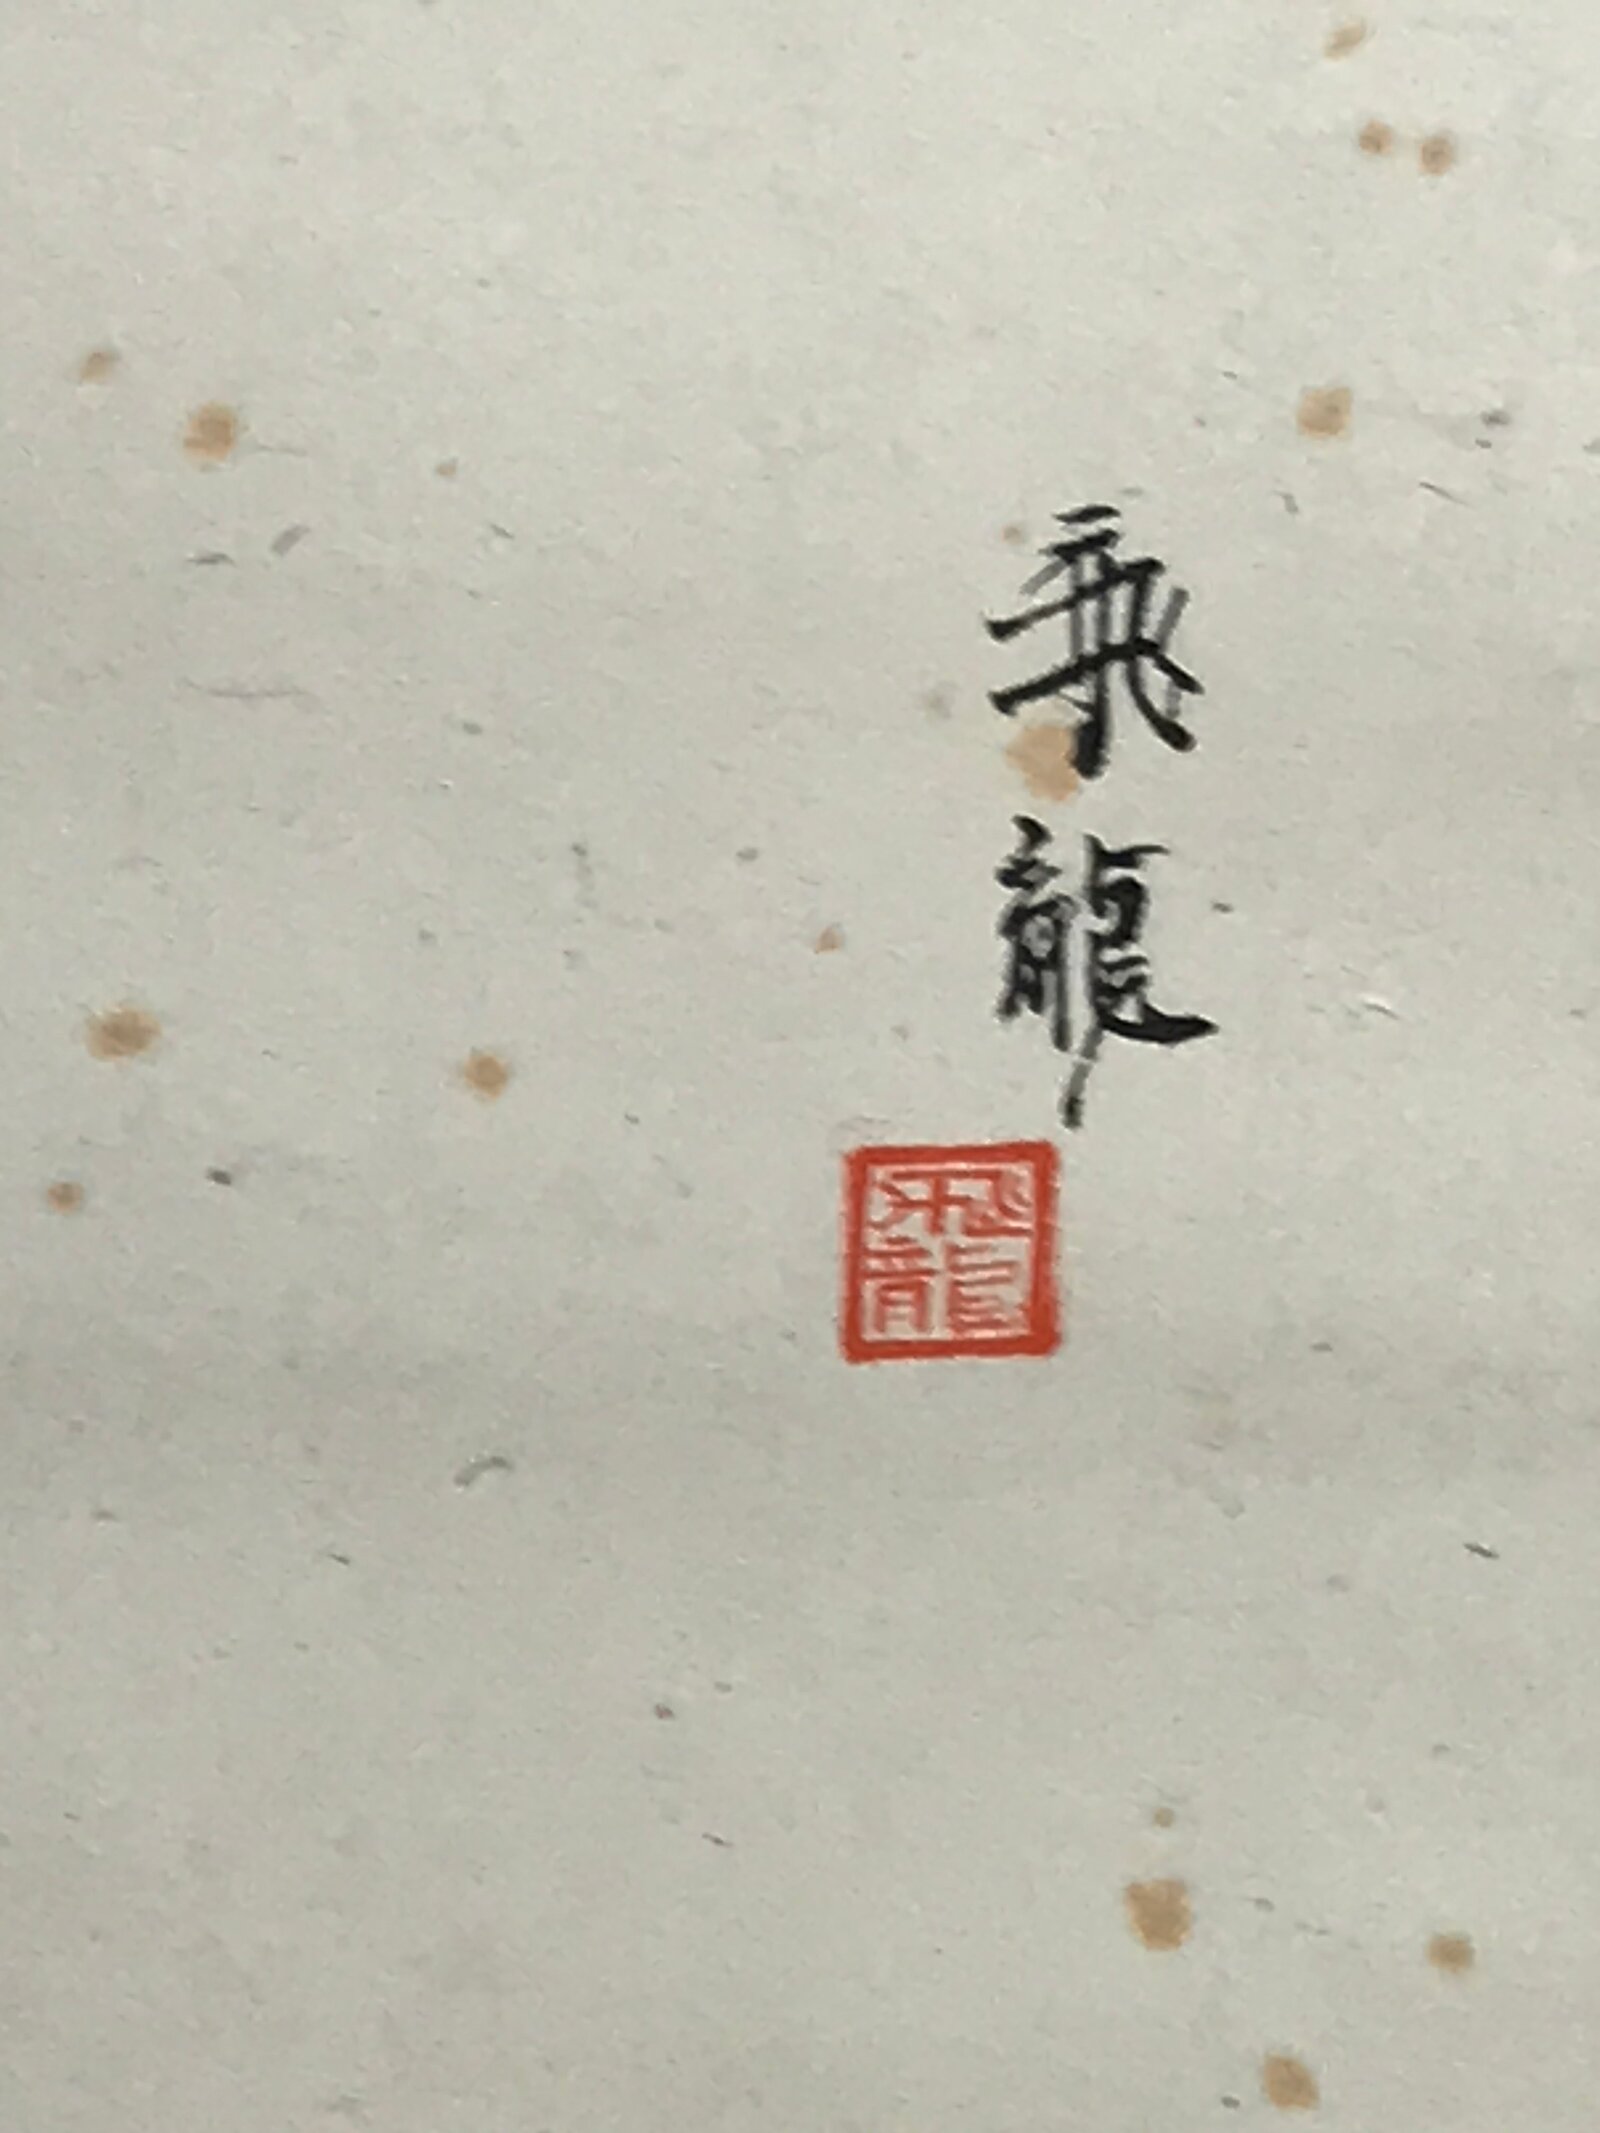 飛龍
飛龍